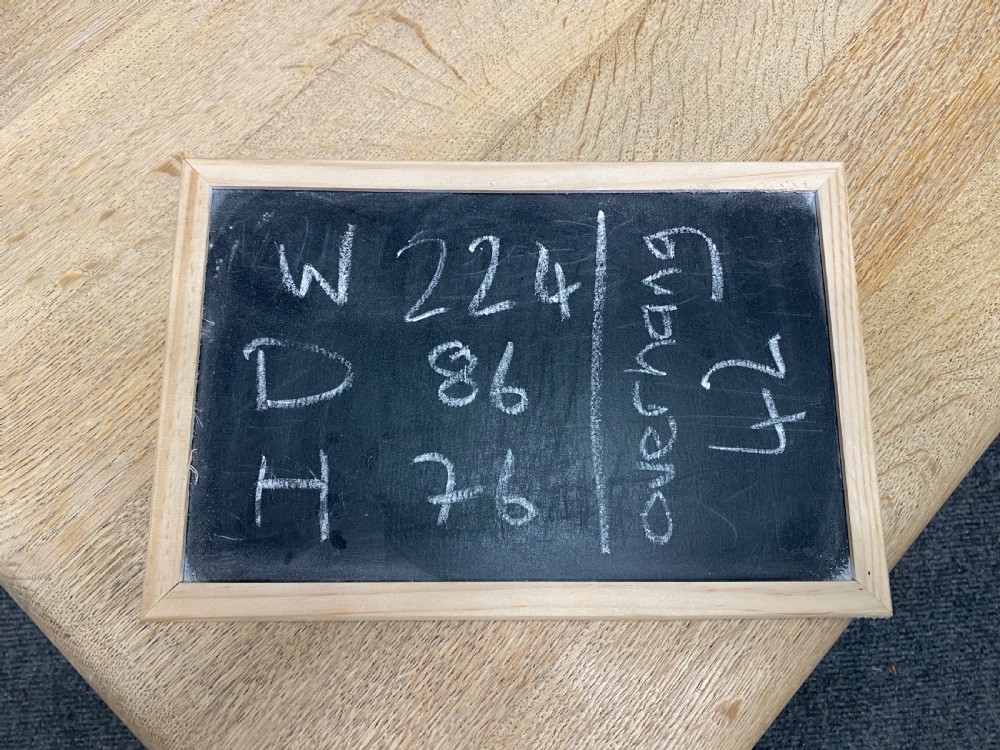 W 224
D 86
H 76
overhang
42